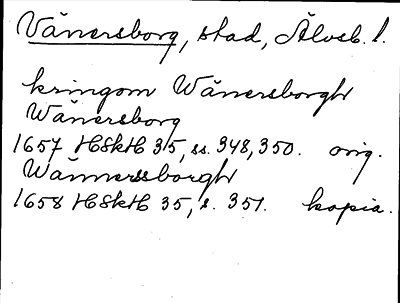 Vänersborg, stad, Älvsb. l.
kringom Wänersborgh
Wänersborg
1657 HSkH 35, ss. 348, 350. orig.
Wännerssborgh
1658 HSkH 35, s. 351. kopia.